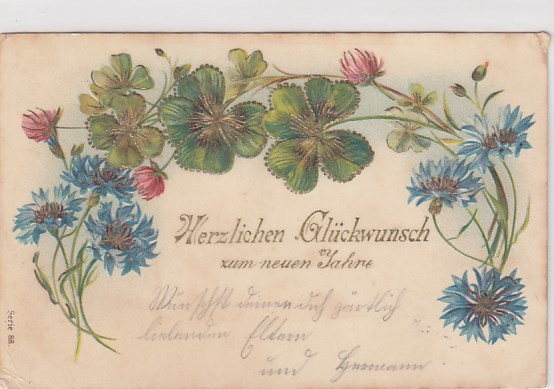 Herzlichen Glückwunsch
zum neuen Jahre
Wünscht deinen dich zärtlich
liebenden Eltern
und Hermann
Serie 88.